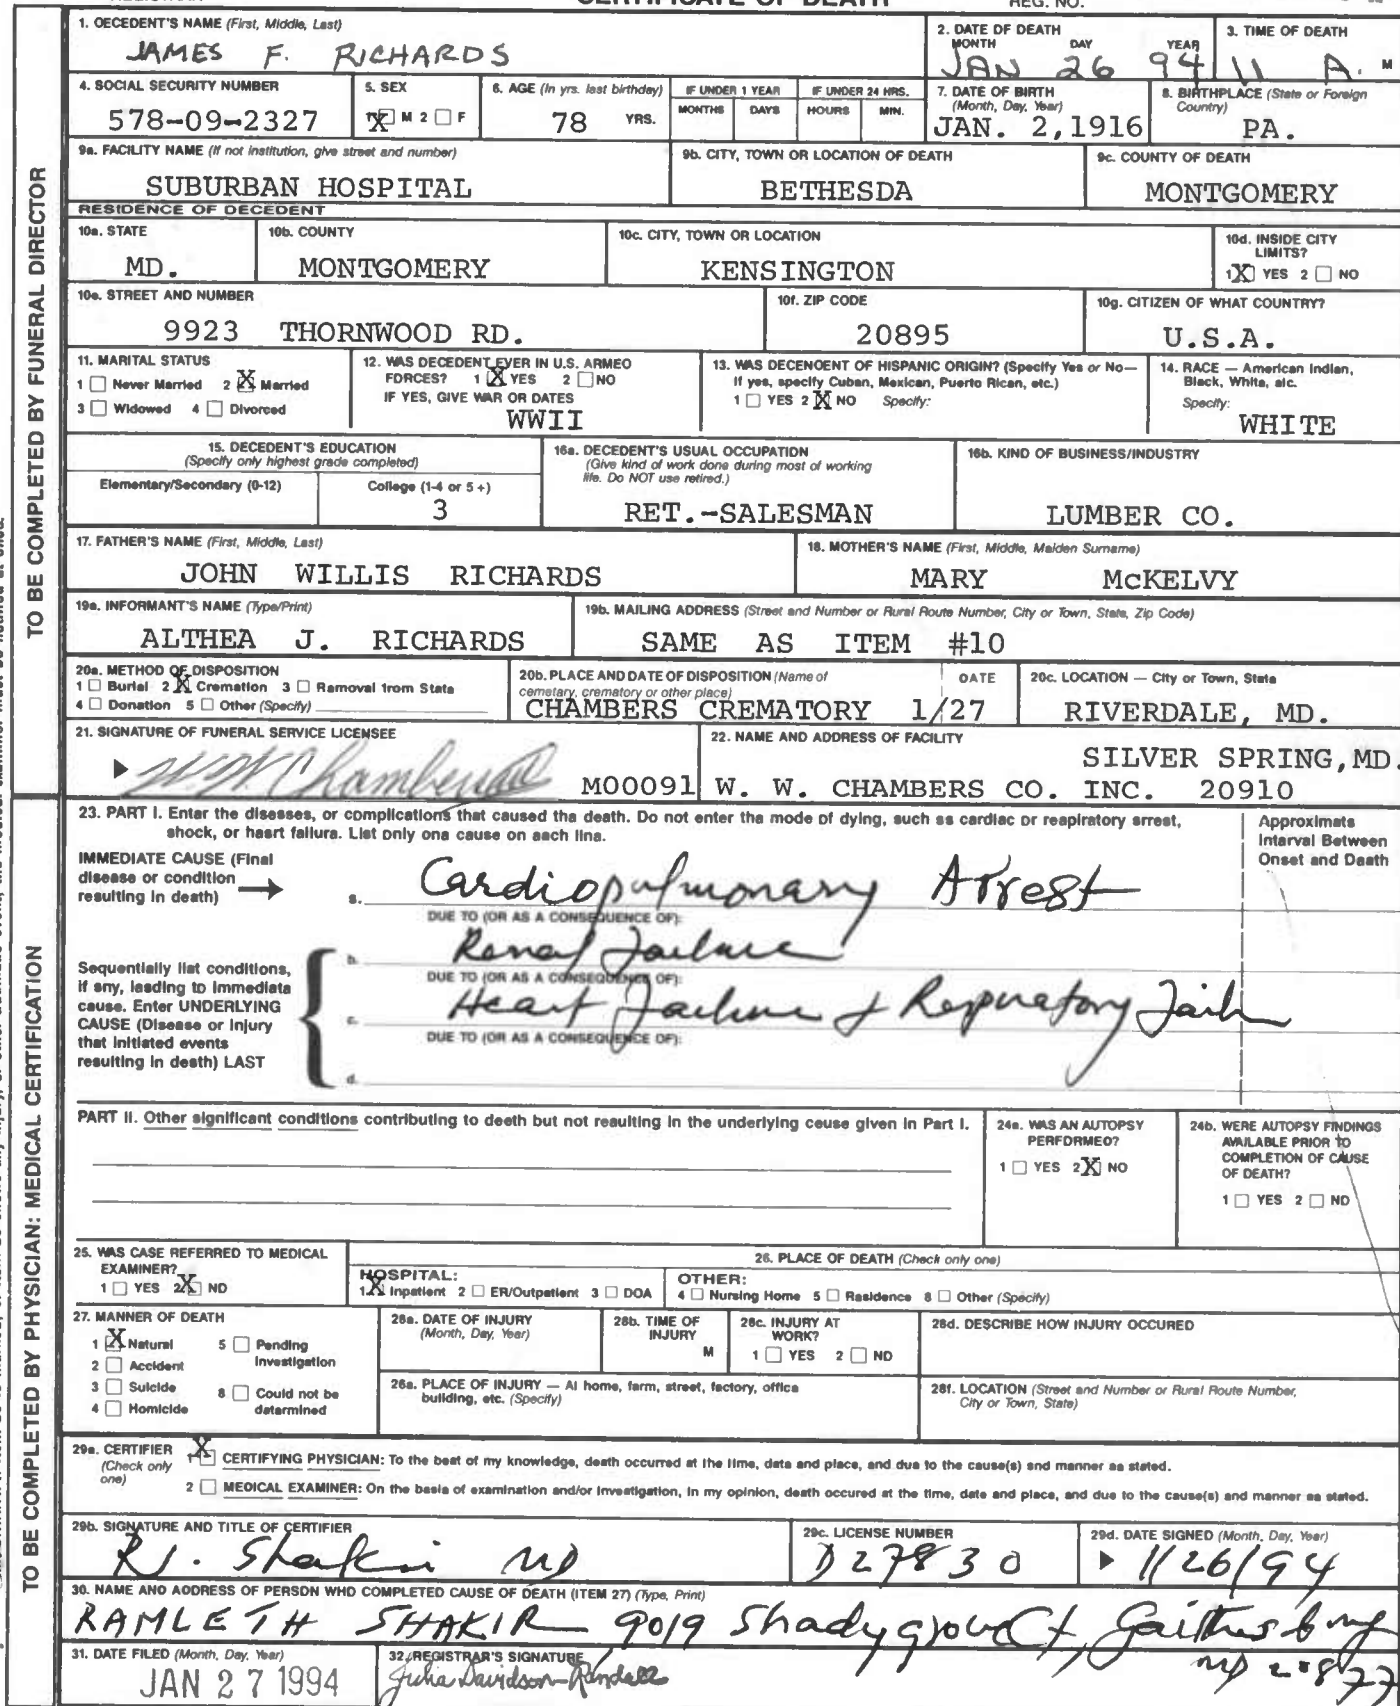 CERTIFICATE OF DEATH REG. NO.
1. DECEDENT'S NAME (First, Middle, Last)
JAMES F. RICHARDS
2. DATE OF DEATH
MONTH DAY YEAR
JAN 26 94
3. TIME OF DEATH
11 A. M
4. SOCIAL SECURITY NUMBER
578-09-2327
5. SEX
1 X M 2 F
6. AGE (In yrs. last birthday)
78 YRS.
IF UNDER 1 YEAR
MONTHS DAYS
IF UNDER 24 HRS.
HOURS MIN.
7. DATE OF BIRTH
(Month, Day, Year)
JAN. 2,1916
8. BIRTHPLACE (State or Foreign
Country)
PA.
9a. FACILITY NAME (If not institution, give street and number)
SUBURBAN HOSPITAL
9b. CITY, TOWN OR LOCATION OF DEATH
BETHESDA
9c. COUNTY OF DEATH
MONTGOMERY
RESIDENCE OF DECEDENT
10a. STATE
MD.
10b. COUNTY
MONTGOMERY
10c. CITY, TOWN OR LOCATION
KENSINGTON
10d. INSIDE CITY
LIMITS?
1 X YES 2 NO
10e. STREET AND NUMBER
9923 THORNWOOD RD.
10f. ZIP CODE
20895
10g. CITIZEN OF WHAT COUNTRY?
U.S.A.
11. MARITAL STATUS
1 Never Married 2 X Married
3 Widowed 4 Divorced
12. WAS DECEDENT EVER IN U.S. ARMED
FORCES? 1 X YES 2 NO
IF YES, GIVE WAR OR DATES
WWII
13. WAS DECENDENT OF HISPANIC ORIGIN? (Specify Yes or No—
If yes, specify Cuban, Mexican, Puerto Rican, etc.)
1 YES 2 X NO Specify:
14. RACE — American Indian,
Black, White, etc.
Specify:
WHITE
15. DECEDENT'S EDUCATION
(Specify only highest grade completed)
Elementary/Secondary (0-12) College (1-4 or 5+)
3
16a. DECEDENT'S USUAL OCCUPATION
(Give kind of work done during most of working
life. Do NOT use retired.)
RET.-SALESMAN
16b. KIND OF BUSINESS/INDUSTRY
LUMBER CO.
17. FATHER'S NAME (First, Middle, Last)
JOHN WILLIS RICHARDS
18. MOTHER'S NAME (First, Middle, Maiden Surname)
MARY McKELVY
19a. INFORMANT'S NAME (Type/Print)
ALTHEA J. RICHARDS
19b. MAILING ADDRESS (Street and Number or Rural Route Number, City or Town, State, Zip Code)
SAME AS ITEM #10
20a. METHOD OF DISPOSITION
1 Burial 2 X Cremation 3 Removal from State
4 Donation 5 Other (Specify)
20b. PLACE AND DATE OF DISPOSITION (Name of DATE
cemetary, crematory or other place)
CHAMBERS CREMATORY 1/27
20c. LOCATION — City or Town, State
RIVERDALE, MD.
21. SIGNATURE OF FUNERAL SERVICE LICENSEE
W.W. Chambers
M00091
22. NAME AND ADDRESS OF FACILITY
SILVER SPRING,MD.
W. W. CHAMBERS CO. INC. 20910
23. PART I. Enter the diseases, or complications that caused the death. Do not enter the mode of dying, such as cardiac or respiratory arrest,
shock, or heart failure. List only one cause on each line.
Approximate
Interval Between
Onset and Death
IMMEDIATE CAUSE (Final
disease or condition
resulting in death)
a. Cardiopulmonary Arrest
DUE TO (OR AS A CONSEQUENCE OF):
b. Renal Failure
DUE TO (OR AS A CONSEQUENCE OF):
c. Heart Failure + Respiratory Fail
DUE TO (OR AS A CONSEQUENCE OF):
d.
Sequentially list conditions,
if any, leading to immediate
cause. Enter UNDERLYING
CAUSE (Disease or injury
that initiated events
resulting in death) LAST
PART II. Other significant conditions contributing to death but not resulting in the underlying cause given in Part I.
24a. WAS AN AUTOPSY
PERFORMED?
1 YES 2 X NO
24b. WERE AUTOPSY FINDINGS
AVAILABLE PRIOR TO
COMPLETION OF CAUSE
OF DEATH?
1 YES 2 NO
25. WAS CASE REFERRED TO MEDICAL
EXAMINER?
1 YES 2 X NO
26. PLACE OF DEATH (Check only one)
HOSPITAL:
1 X Inpatient 2 ER/Outpatient 3 DOA
OTHER:
4 Nursing Home 5 Residence 6 Other (Specify)
27. MANNER OF DEATH
1 X Natural 5 Pending
Investigation
2 Accident
3 Suicide 6 Could not be
determined
4 Homicide
28a. DATE OF INJURY
(Month, Day, Year)
28b. TIME OF
INJURY
M
28c. INJURY AT
WORK?
1 YES 2 NO
28d. DESCRIBE HOW INJURY OCCURED
28e. PLACE OF INJURY — At home, farm, street, factory, office
building, etc. (Specify)
28f. LOCATION (Street and Number or Rural Route Number,
City or Town, State)
29a. CERTIFIER
(Check only
one)
1 X CERTIFYING PHYSICIAN: To the best of my knowledge, death occurred at the time, date and place, and due to the cause(s) and manner as stated.
2 MEDICAL EXAMINER: On the basis of examination and/or investigation, in my opinion, death occured at the time, date and place, and due to the cause(s) and manner as stated.
29b. SIGNATURE AND TITLE OF CERTIFIER
R.J. Shakir MD
29c. LICENSE NUMBER
D27830
29d. DATE SIGNED (Month, Day, Year)
1/26/94
30. NAME AND ADDRESS OF PERSON WHO COMPLETED CAUSE OF DEATH (ITEM 27) (Type, Print)
RAMLETH SHAKIR, 9019 Shadygrove Ct, Gaithersburg
MD 20877
31. DATE FILED (Month, Day, Year)
JAN 27 1994
32. REGISTRAR'S SIGNATURE
Julia Davidson-Randall
TO BE COMPLETED BY FUNERAL DIRECTOR
TO BE COMPLETED BY PHYSICIAN: MEDICAL CERTIFICATION